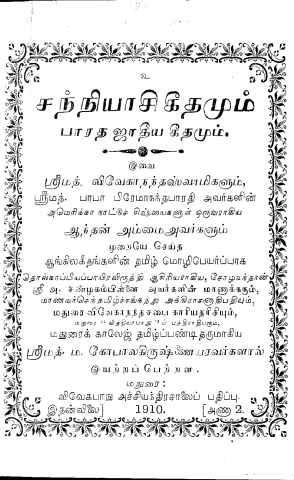 உ
சந்நியாசிகீதமும்
பாரத ஜாதீய கீதமும்.
இவை
ஸ்ரீமத். விவேகாநந்தஸ்வாமிகளும்,
ஸ்ரீமத். பாபா பிரேமாநந்தபாரதி அவர்களின்
அமெரிக்கா நாட்டுச் சிஷ்யைகளுள் ஒருவராகிய
ஆந்தன் அம்மைஅவர்களும்
முறையே செய்த
ஆங்கிலகீதங்களின் தமிழ் மொழிபெயர்ப்பாக
தொல்காப்பியப்பாயிரவிருத்தி ஆசிரியராகிய, சோழவந்தான்
ஸ்ரீ அ. சண்முகம்பிள்ளை அவர்களின் மாணாக்கரும்,
மாணவர்செந்தமிழ்ச்சங்கத்து அக்கிராசனாதிபதியும்,
மதுரை விவேகாநந்தசபை காரியதரிசியும்,
மதுரை பத்திராதிபரும்,
மதுரைக் காலேஜ் தமிழ்ப்பண்டிதருமாகிய
ஸ்ரீமத். ம. கோபாலகிருஷ்ணையரவர்களால்
இயற்றப்பெற்றன.
மதுரை:
விவேகபாநு அச்சியந்திரசாலைப் பதிப்பு.
இதன்விலை] 1910. [அணா 2.